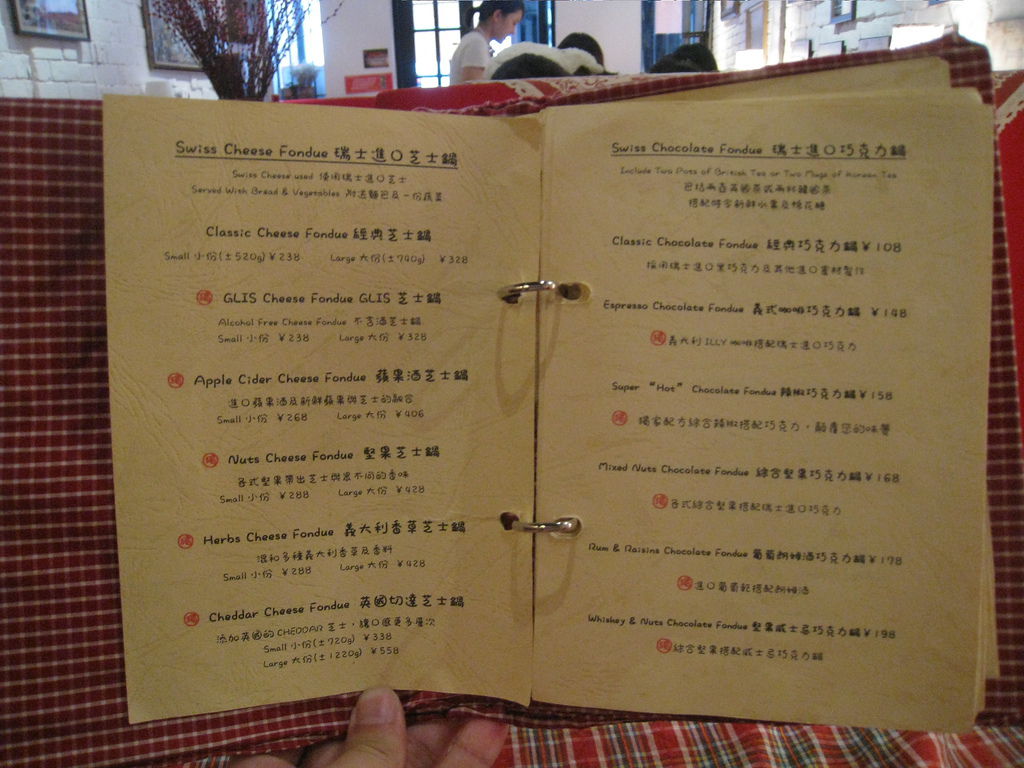 Swiss Cheese Fondue 瑞士進口芝士鍋
Swiss Cheese used 使用瑞士進口芝士
Served With Bread & Vegetables 附送麵包及一份蔬菜
Classic Cheese Fondue 經典芝士鍋
Small 小份(±520g) ¥238 Large 大份(±740g) ¥328
GLIS Cheese Fondue GLIS 芝士鍋
Alcohol Free Cheese Fondue 不含酒芝士鍋
Small 小份 ¥238 Large 大份 ¥328
Apple Cider Cheese Fondue 蘋果酒芝士鍋
進口蘋果酒及新鮮蘋果與芝士的融合
Small 小份 ¥268 Large 大份 ¥406
Nuts Cheese Fondue 堅果芝士鍋
各式堅果帶出芝士與眾不同的香味
Small 小份 ¥288 Large 大份 ¥428
Herbs Cheese Fondue 義大利香草芝士鍋
混和多種義大利香草及香料
Small 小份 ¥288 Large 大份 ¥428
Cheddar Cheese Fondue 英國切達芝士鍋
添加英國的 CHEDDAR 芝士，讓口感更多層次
Small 小份(±720g) ¥338
Large 大份(±1220g) ¥558
Swiss Chocolate Fondue 瑞士進口巧克力鍋
Include Two Pots of British Tea or Two Mugs of Korean Tea
包括兩壺英國茶或兩杯韓國茶
搭配時令新鮮水果及棉花糖
Classic Chocolate Fondue 經典巧克力鍋 ¥108
採用瑞士進口黑巧克力及其他進口素材製作
Espresso Chocolate Fondue 義式咖啡巧克力鍋 ¥148
義大利 ILLY 咖啡搭配瑞士進口巧克力
Super "Hot" Chocolate Fondue 辣椒巧克力鍋 ¥158
獨家配方綜合辣椒搭配巧克力，顛覆您的味蕾
Mixed Nuts Chocolate Fondue 綜合堅果巧克力鍋 ¥168
各式綜合堅果搭配瑞士進口巧克力
Rum & Raisins Chocolate Fondue 葡萄朗姆酒巧克力鍋 ¥178
進口葡萄乾搭配朗姆酒
Whiskey & Nuts Chocolate Fondue 堅果威士忌巧克力鍋 ¥198
綜合堅果搭配威士忌巧克力鍋